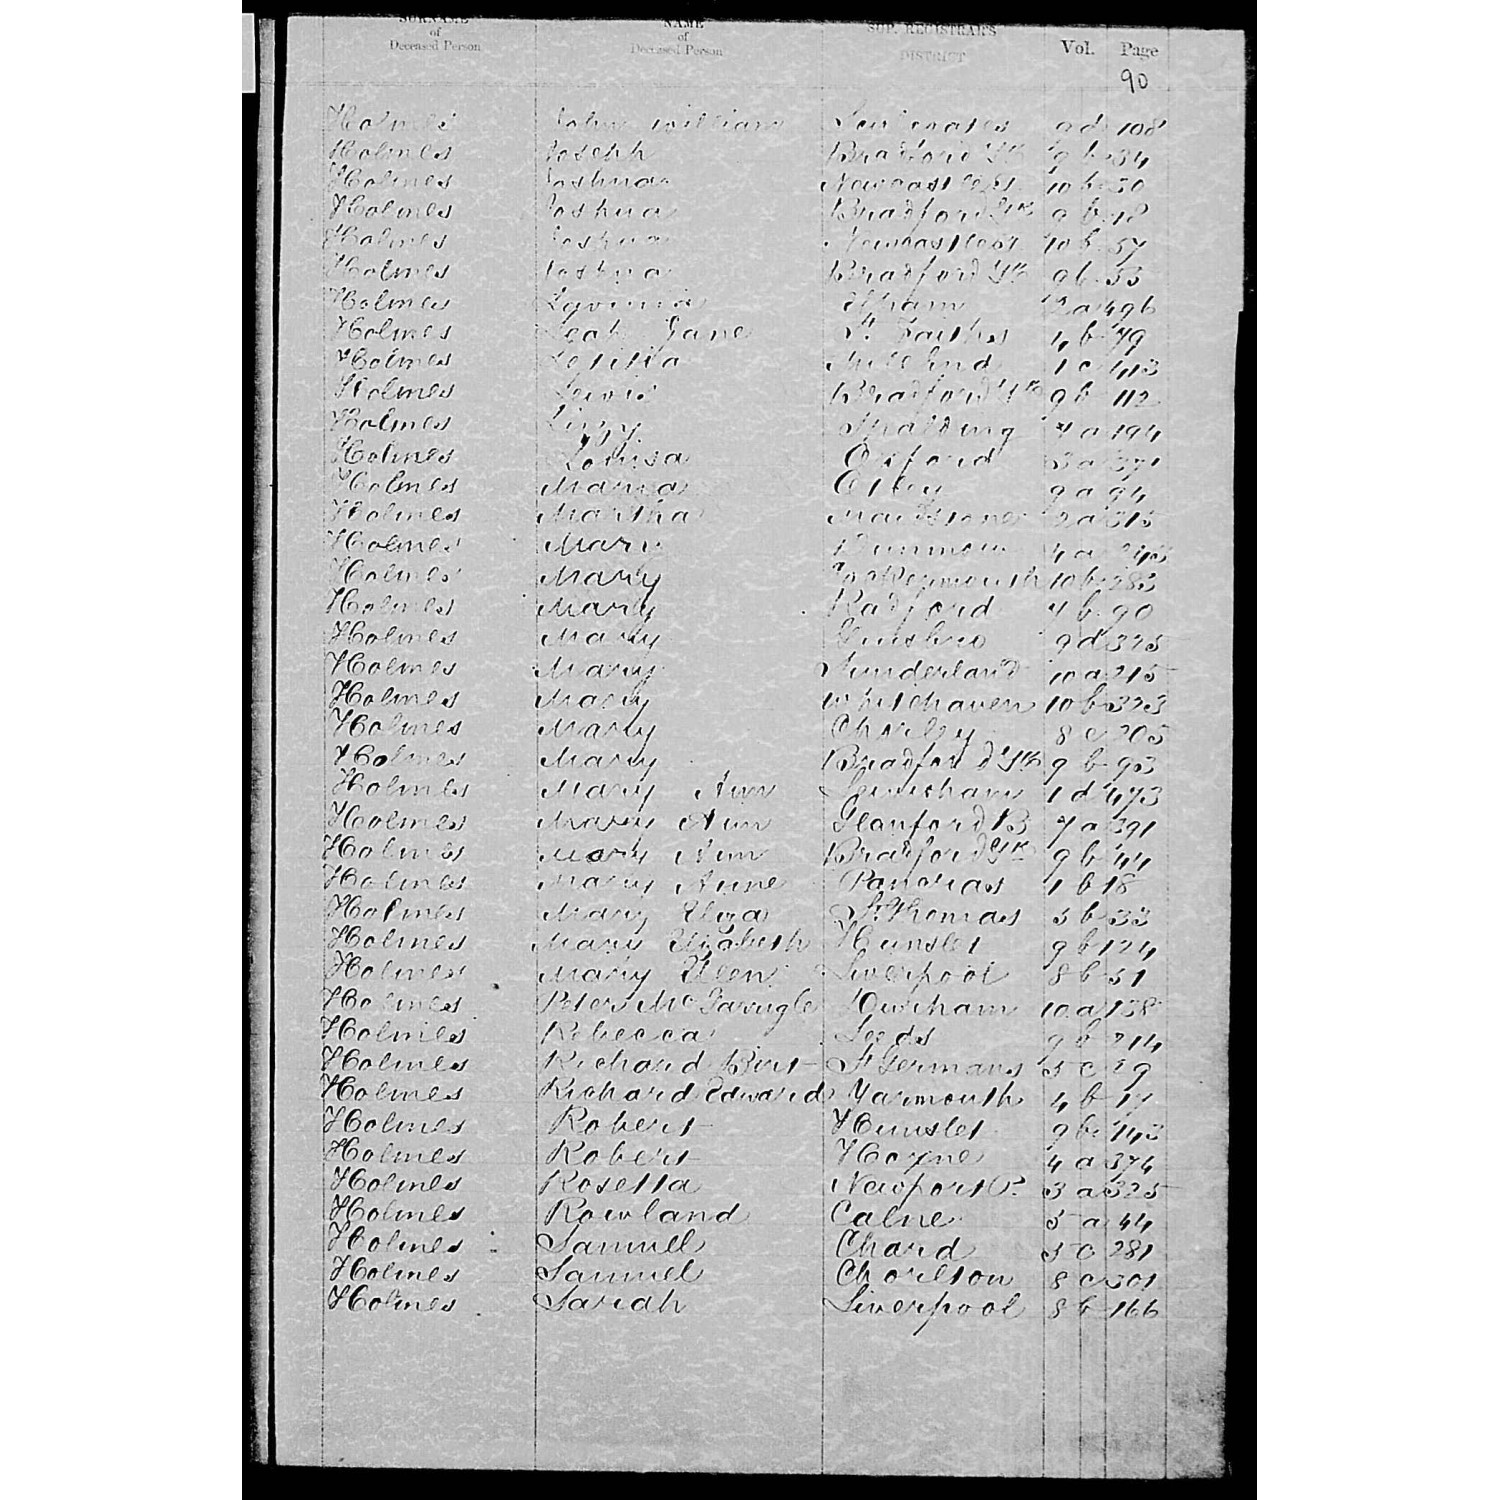 SURNAME of Deceased Person NAME of Deceased Person SUP. REGISTRAR'S DISTRICT Vol. Page
90
Holmes John William Sculcoates 9 d 108
Holmes Joseph Bradford Yk 9 b 34
Holmes Joshua Newcastle 10 b 50
Holmes Joshua Bradford Yk 9 b 18
Holmes Joshua Newcastle 10 b 57
Holmes Joshua Bradford Yk 9 b 53
Holmes Lavinia Elham 2 a 496
Holmes Leah Jane St Faiths 4 b 79
Holmes Letitia Mile End 1 c 413
Holmes Lewis Bradford Yk 9 b 112
Holmes Lizzy Spalding 7 a 194
Holmes Louisa Oxford 3 a 371
Holmes Maria Otley 9 a 94
Holmes Martha Maidstone 2 a 315
Holmes Mary Dunmow 4 a
Holmes Mary Cockermouth 10 b 283
Holmes Mary Radford 7 b 90
Holmes Mary Guisbro 9 d 325
Holmes Mary Sunderland 10 a 215
Holmes Mary Whitehaven 10 b 323
Holmes Mary Chorley 8 e 205
Holmes Mary Bradford Yk 9 b 93
Holmes Mary Ann Lewisham 1 d 473
Holmes Mary Ann Glanford B 7 a 391
Holmes Mary Ann Bradford Yk 9 b 44
Holmes Mary Anne Pancras 1 b 18
Holmes Mary Eliza St. Thomas 5 b 33
Holmes Mary Elizabeth Hunslet 9 b 124
Holmes Mary Ellen Liverpool 8 b 51
Holmes Peter McGarrigle Durham 10 a 138
Holmes Rebecca Leeds 9 b 214
Holmes Richard Birt St Germans 5 c 29
Holmes Richard Edward Yarmouth 4 b 17
Holmes Robert Hunslet 9 b 143
Holmes Robert Hoxne 4 a 374
Holmes Rosetta Newport P. 3 a 325
Holmes Rowland Calne 5 a 44
Holmes Samuel Chard 5 c 281
Holmes Samuel Chorlton 8 c 301
Holmes Sarah Liverpool 8 b 166